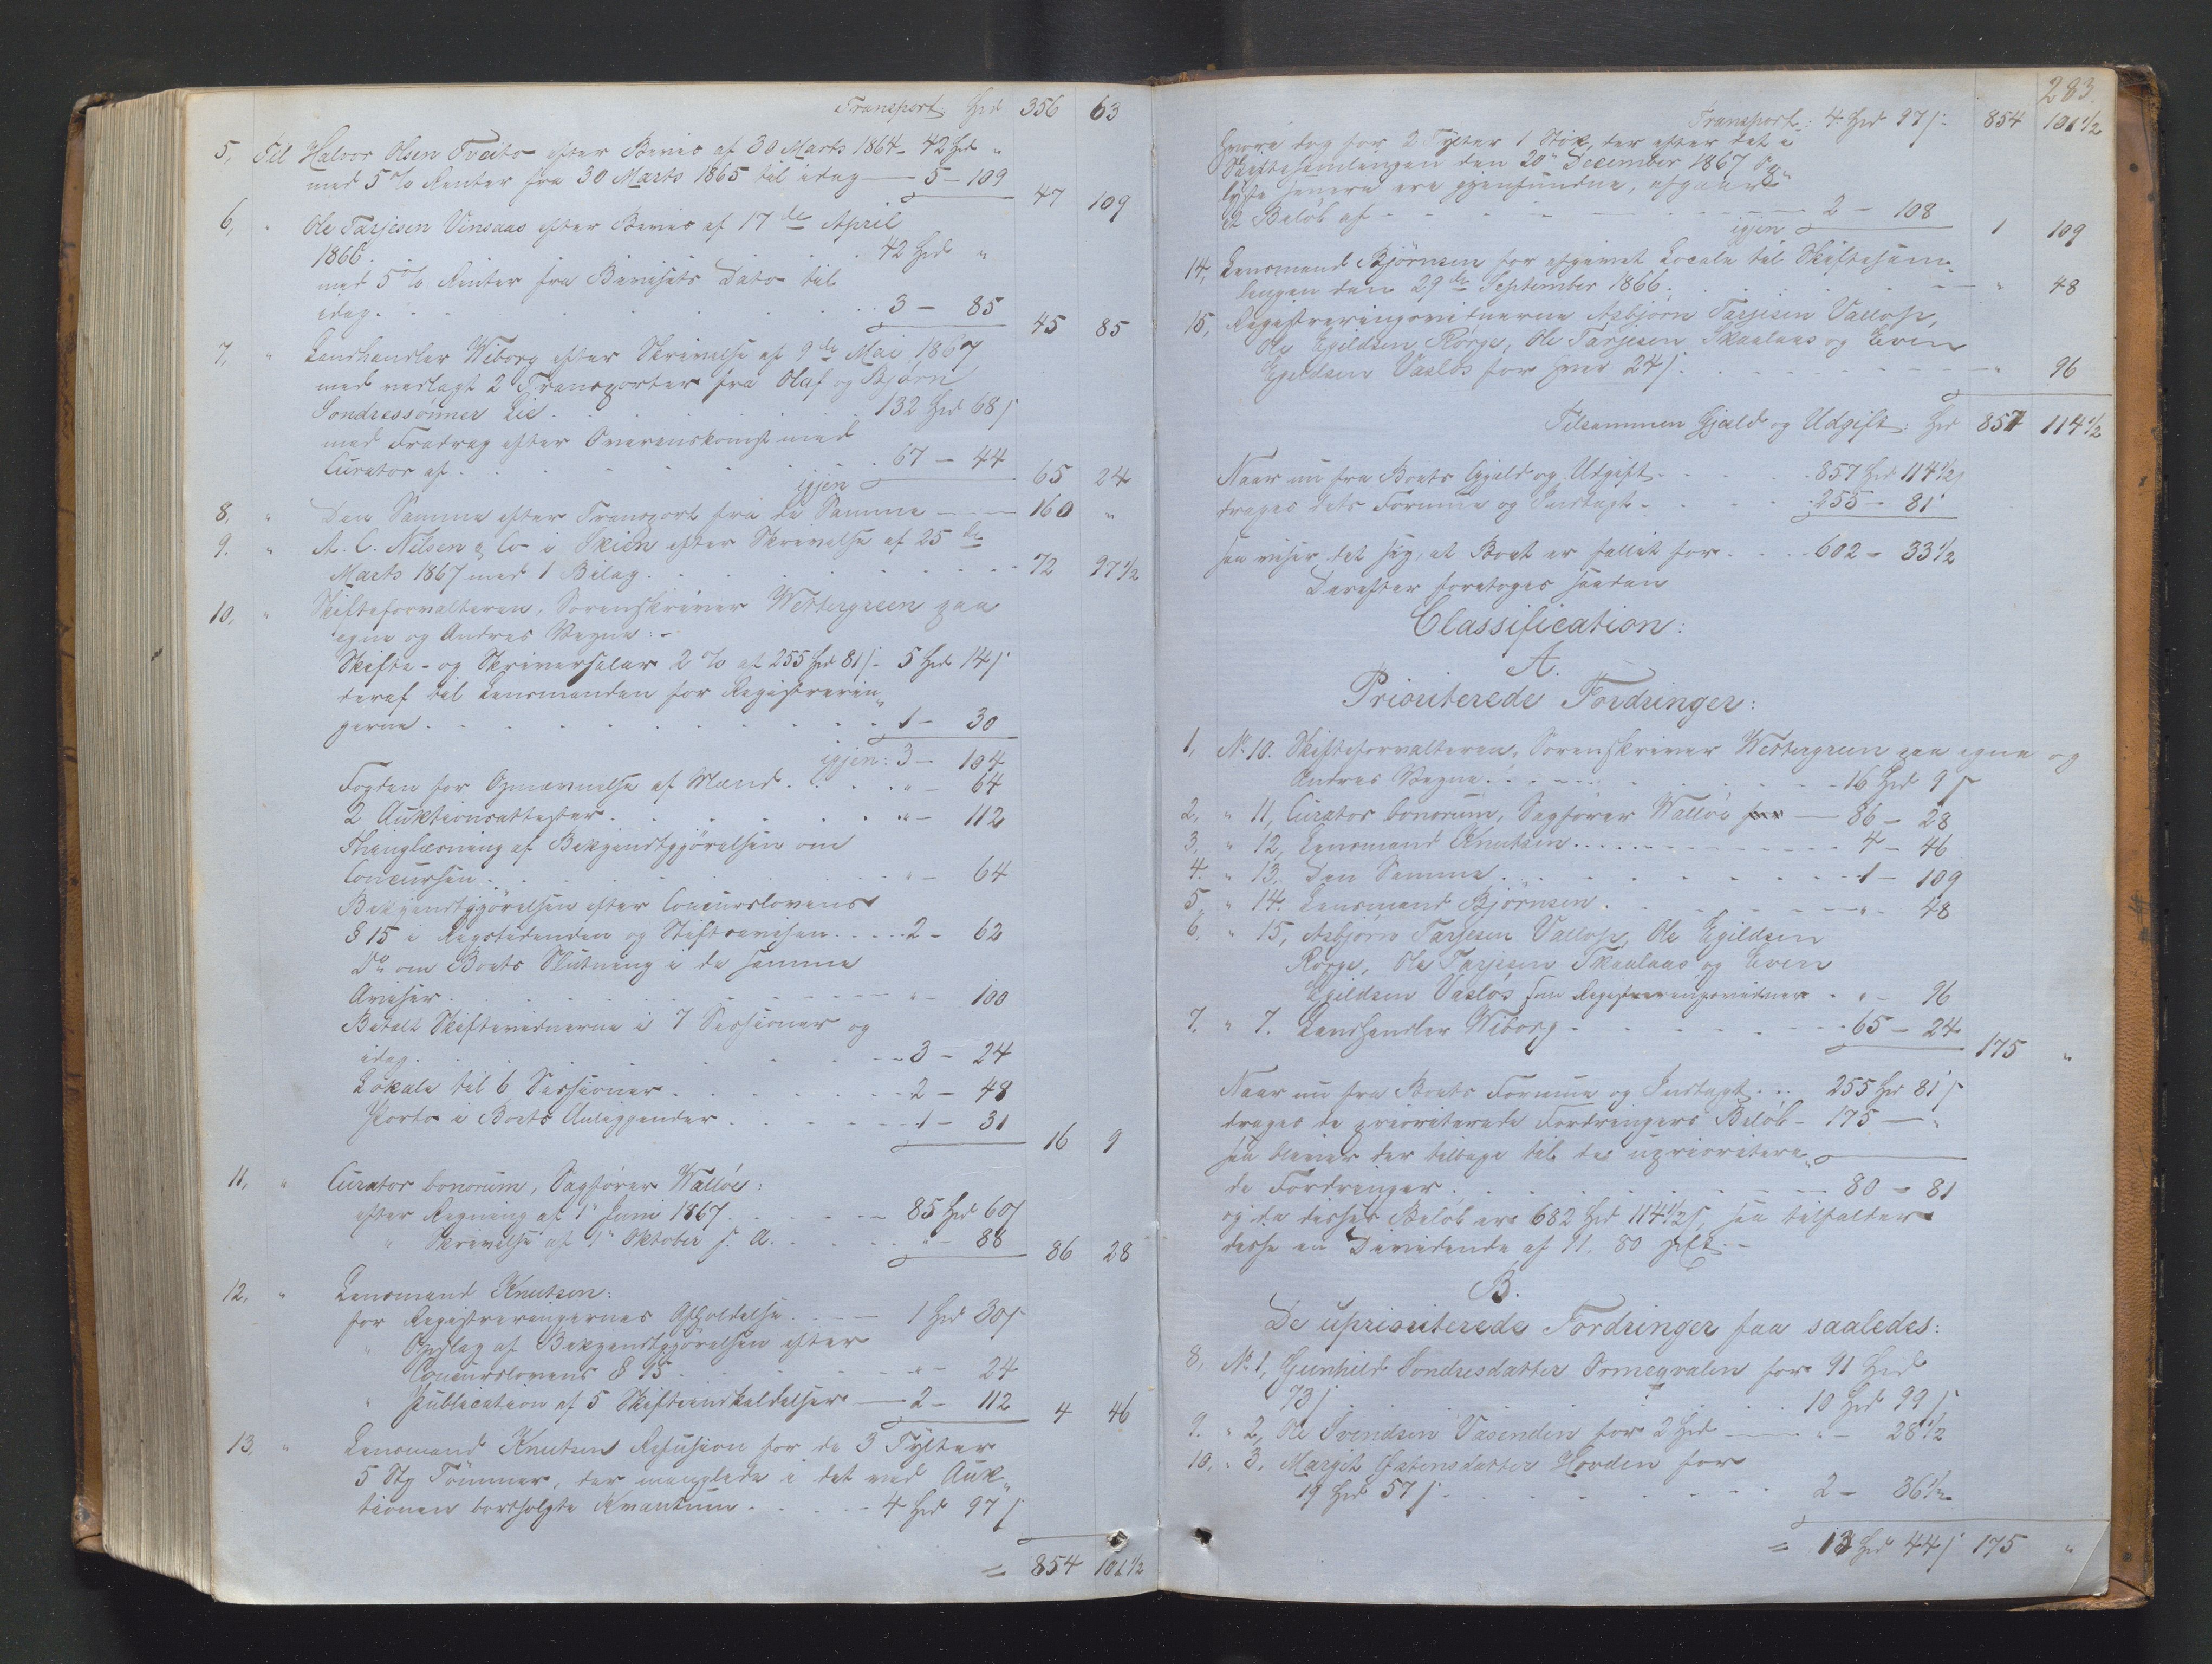 Transport Spd 356 63
5, Til Halvor Olsen Tveito efter Bevis af 30 Marts 1864 - 42 Spd "
med 5 % Renter fra 30 Marts 1865 til idag — 5 - 109
47 109
6, " Ole Tarjesen Vinsaas efter Bevis af 17de April
1866 . . . 42 Spd "
med 5 % Renter fra Bevisets Dato til
idag . . . 3 - 85
45 85
7, " Landhandler Wiborg efter Skrivelse af 9de Mai 1867
med vedlagt 2 Transporter fra Olaf og Bjørn
Sondressønner Lie . . . 132 Spd 68 s
med Fradrag efter Overenskomst med
Curator af . . . 67 - 44
igjen 65 24
8, " Den Samme efter Transport fra de Samme — 160 "
9. " A. C. Nilsen & Co i Skien efter Skrivelse af 25de
Marts 1867 med 1 Bilag . . . 72 97½
10, " Skifteforvalteren, Sorenskriver Wettergreen paa
egne og Andres Vegne: -
Skifte- og Skriversalær 2 % af 255 Spd 81 s - 5 Spd 14 s
deraf til Lensmanden for Registrerin„
gerne . . . 1 - 30
igjen: 3 - 104
Fogden for Opnævnelse af Mænd . . . " - 64
2 Auktionsattester . . . " - 112
Thinglæsning af Bekjendtgjørelsen om
Concursen . . . " - 64
Bekjendtgjørelsen efter Concurslovens
§ 15 i Rigstidenden og Stiftsavisen . . . 2 - 62
Do om Boets Slutning i de samme
Aviser . . . " - 100
Betalt Skiftevidnerne i 7 Sessioner og
idag . . . 3 - 24
Lokale til 6 Sessioner . . . 2 - 48
Porto i Boets Anliggender . . . 1 - 31
16 9
11, " Curator bonorum, Sagfører Walløe:
efter Regning af 1" Juni 1867 . . . 85 Spd 60 s
" Skrivelse af 1" Oktober s. A. . . . " - 88
86 28
12, " Lensmand Knutsen:
for Registreringernes Afholdelse . . . 1 Spd 30 s
" Opslag af Bekjendtgjørelsen efter
Concurslovens § 15 . . . " - 24
" Publication af 5 Skifteindkaldelser — 2 - 112
4 46
13, " Lensmand Knutsens Refusion for de 3 Tylter
5 Stk Tømmer, der manglede i det ved Auk„
tionen bortsolgte Kvantum . . . 4 Spd 97 s
= 854 101½
283.
Transport: 4 Spd 97 s 854 101½
hvori dog for 2 Tylter 1 Stok, der efter det i
Skiftesamlingen den 20" December 1867 Op„
lyste senere ere gjenfundne, afgaar
et Beløb af . . . 2 - 108
igjen 1 109
14, Lensmand Bjørnsen for afgivet Locale til Skiftesam„
lingen den 29de September 1866 . . . " 48
15, Registreringsvidnerne Asbjørn Tarjesen Vallop,
Ole Egildsen Rorge, Ole Tarjesen Skaalaas og Even
Egildsen Vaslos for hver 24 s . . . " 96
Tilsammen Gjæld og Udgift: Spd 857 114½
Naar nu fra Boets Gjæld og Udgift . . . 857 Spd 114½ s
drages dets Formue og Indtægt . . . 255 - 81
saa viser det sig, at Boet er fallit for . . . 602 - 33½
Derefter foretoges saadan
Classification:
A.
Prioriterede Fordringer:
1, No 10. Skifteforvalteren, Sorenskriver Wettergreen paa egne og
Andres Vegne . . . 16 Spd 9 s
2, " 11, Curator bonorum, Sagfører Walløe — 86 - 28
3. " 12, Lensmand Knutsen . . . 4 - 46
4. " 13. Den Samme . . . 1 - 109
5 " 14. Lensmand Bjørnsen . . . " - 48
6, " 15, Asbjørn Tarjesen Vallop, Ole Egildsen
Rorge, Ole Tarjesen Skaalaas og Even
Egildsen Vaslos som Registreringsvidner . " - 96
7. " 7. Landhandler Wiborg . . . 65 - 24
175 "
Naar nu fra Boets Formue og Indtægt . . . 255 Spd 81 s
drages de prioriterede Fordringers Beløb - 175 — "
saa bliver der tilbage til de uprioritere„
de Fordringer . . . 80 - 81
og da disses Beløb er 682 Spd 114½ s, saa tilfalder
disse en Dividende af 11. 80 pCt. -
B.
De uprioriterede Fordringer faa saaledes:
8, No 1, Gunhild Sondresdatter Ormeqvalen for 91 Spd
73 s . . . 10 Spd 99 s
9. " 2, Ole Svendsen Vasenden for 2 Spd — " - 28½
10, " 3. Margit Østensdatter Hovden for
19 Spd 57 s . . . 2 - 36½
= 13 Spd 44 s 175 "